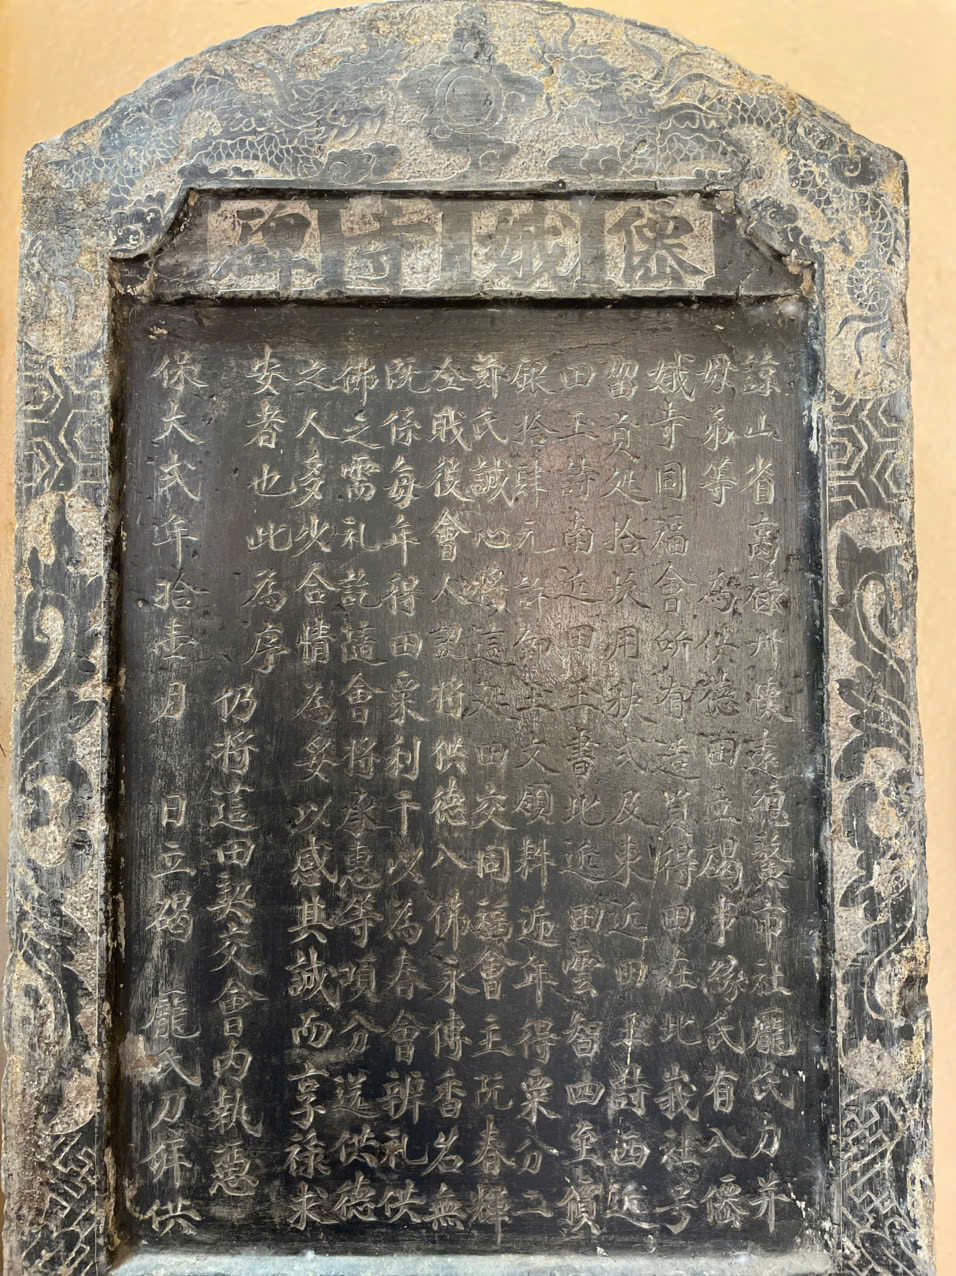 僊娥寺碑
諒山省高祿州懷遠總鰲市社龐氏力并
毋弟等為供德田立碣事緣氏有入僊
娥寺同福會所有造買得田在此我社孑
留貢処拾莢用秋弍及東近田平詩西近
田平詩南近田王書北近田雲智西至賣
銀拾肆元許御主文領耕近年得粟分二
辦氏誠心將這処田交同福會主阮春輝
仝戝役會人認將供德入佛永傳香名無
阮係每年得田粟利干以為春會辨礼供
佛之需礼訖這會將承惠等項分送供德
之人多少合情為妥以感其誠而享祿求
安者也此為序
仍將這田契交會內執憑
保大氏年拾壹月 日立碣 龐氏力拜供